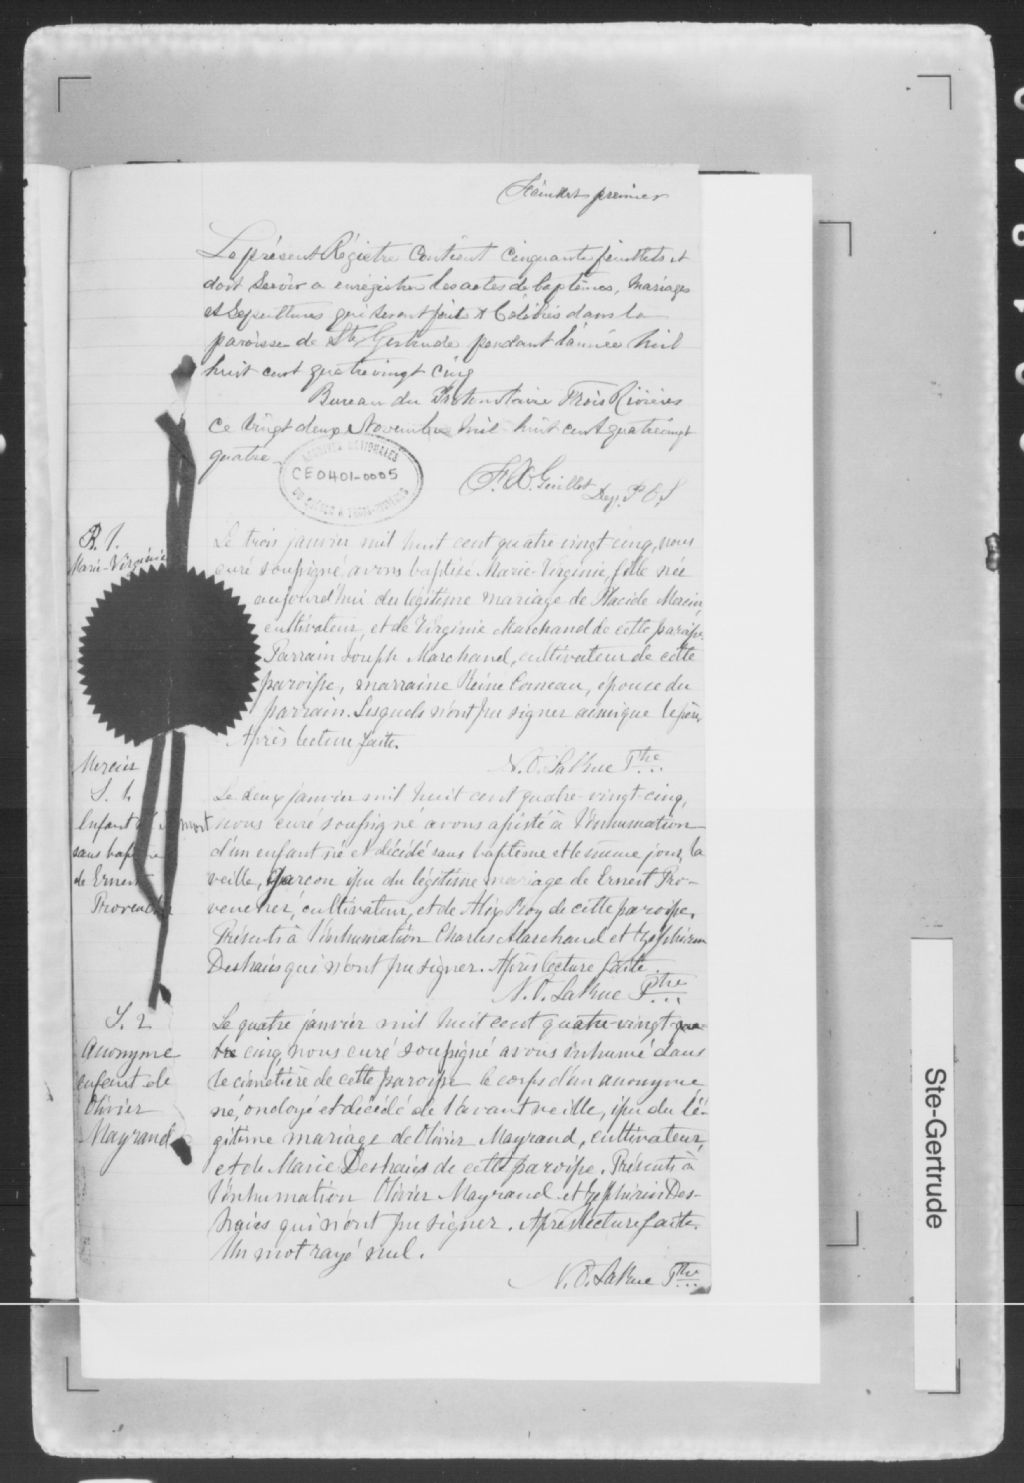 Feuillet premier
Le présent Régistre Contient Cinquante feuillets et
doit servir a enrégistrer les actes de baptêmes, Mariages
et Sepultures qui seront faits & Célébrés dans la
paroisse de Ste Gertrude pendant l'année mil
huit cent quatre vingt cinq
Bureau du Protonotaire Trois Rivières
Ce Vingt deux Novembre mil huit cent quatre vingt
quatre
ARCHIVES NATIONALES
CE0401-0005
DU QUÉBEC À TROIS-RIVIÈRES
F. X. Guillet Dep. P C S
B. 1.
Marie-Virginie
Mercier
Le trois janvier mil huit cent quatre vingt cinq, nous
curé soussigné avons baptisé Marie-Virginie fille née
aujourd'hui du légitime mariage de Placide
cultivateur, et de Virginie Marchand de cette paroisse.
Parrain Joseph Marchand, cultivateur de cette
paroisse, marraine Reine Comeau, épouse du
parrain. Lesquels n'ont pu signer ainsi que le père.
Après lecture faite.
N. O. LaRue Ptre
S. 1.
Enfant mort
sans baptême
de Ernest
Provencher
Le deux janvier mil huit cent quatre-vingt-cinq,
nous curé soussigné avons assisté à l'inhumation
d'un enfant né et décédé sans baptême et le même jour, la
veille, garçon issu du légitime mariage de Ernest Pro-
vencher, cultivateur, et de Alix Roy de cette paroisse.
Présents à l'inhumation Charles Marchand et Zéphirin
Deshaies qui n'ont pu signer. Après lecture faite.
N. O. LaRue Ptre
S. 2
Anonyme
enfant de
Olivier
Mayrand
Le quatre janvier mil huit cent quatre-vingt qua-
tre cinq, nous curé soussigné avons inhumé dans
le cimetière de cette paroisse le corps d'un anonyme
né, ondoyé et décédé de l'avant veille, issu du lé-
gitime mariage de Olivier Mayrand, cultivateur,
et de Marie Deshaies de cette paroisse. Présents à
l'inhumation Olivier Mayrand et Zéphirin Des-
haies qui n'ont pu signer. Après lecture faite.
Un mot rayé nul.
N. O. LaRue Ptre
Ste-Gertrude